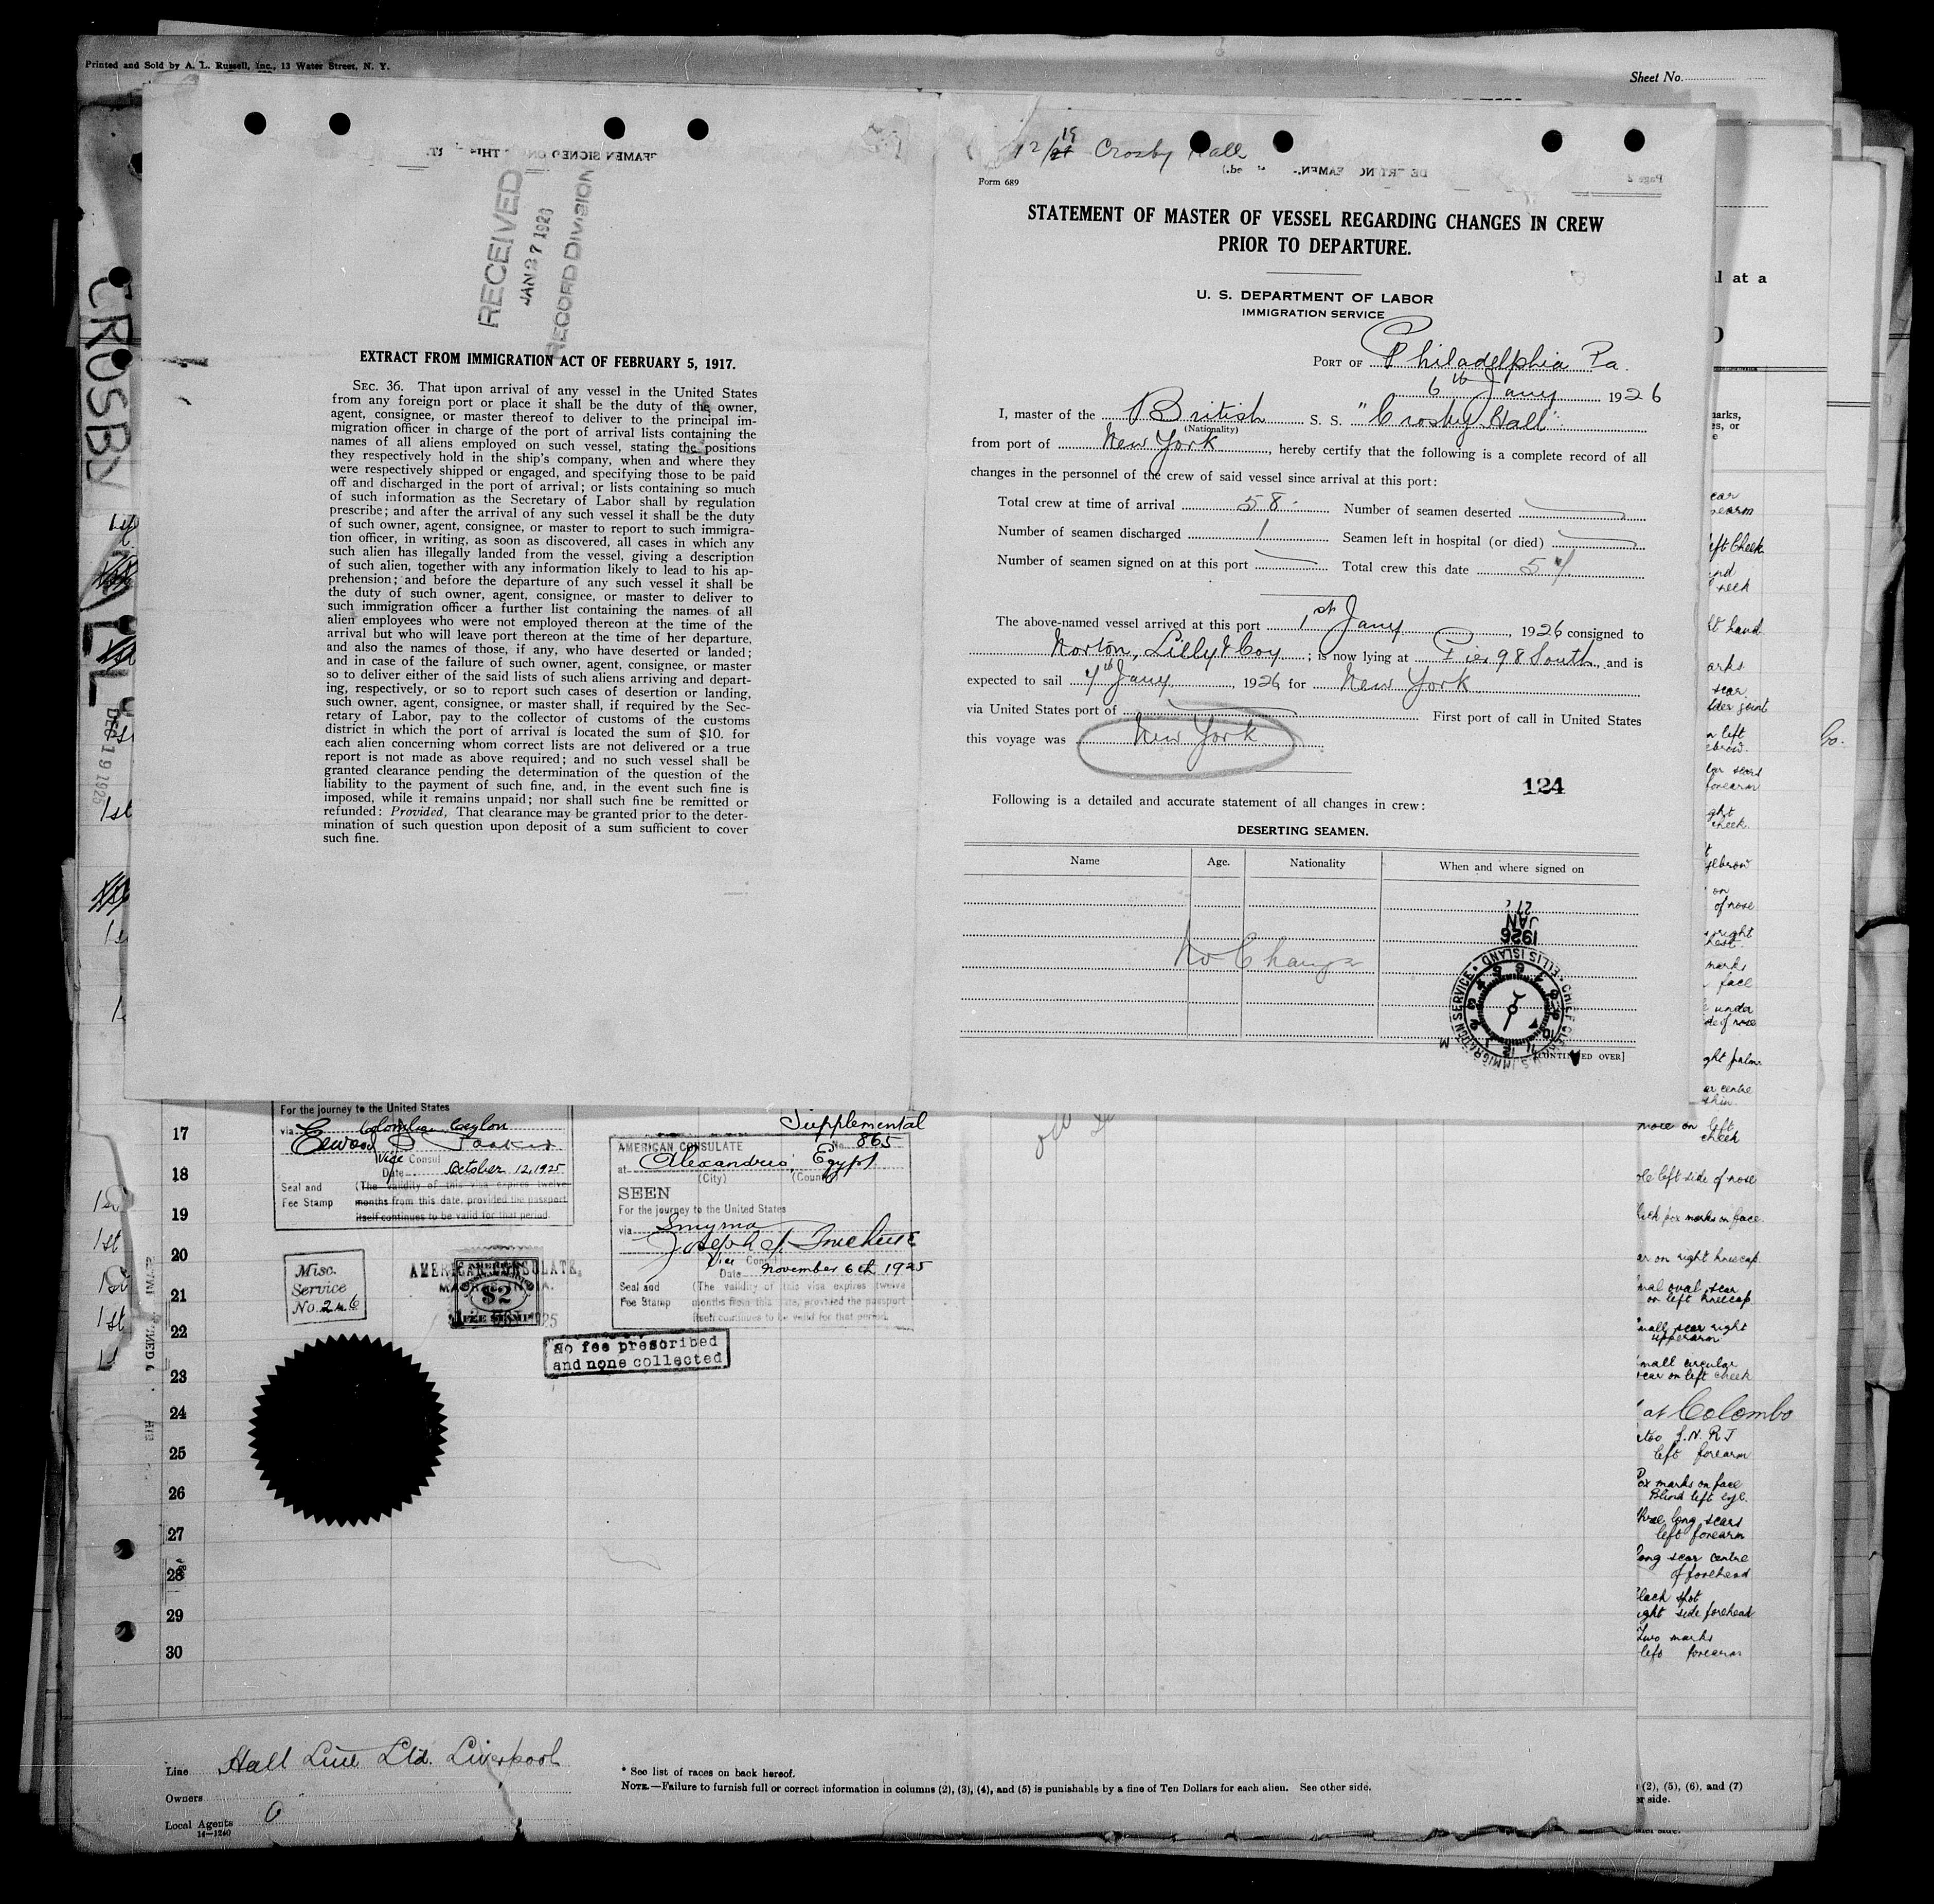 Printed and Sold by A. L. Russell, Inc., 13 Water Street, N. Y.
Sheet No.
CROSBY
DEC 19 1925
RECEIVED
JAN 27 1926
RECORD DIVISION
EXTRACT FROM IMMIGRATION ACT OF FEBRUARY 5, 1917.
SEC. 36. That upon arrival of any vessel in the United States
from any foreign port or place it shall be the duty of the owner,
agent, consignee, or master thereof to deliver to the principal im-
migration officer in charge of the port of arrival lists containing the
names of all aliens employed on such vessel, stating the positions
they respectively hold in the ship's company, when and where they
were respectively shipped or engaged, and specifying those to be paid
off and discharged in the port of arrival; or lists containing so much
of such information as the Secretary of Labor shall by regulation
prescribe; and after the arrival of any such vessel it shall be the duty
of such owner, agent, consignee, or master to report to such immigra-
tion officer, in writing, as soon as discovered, all cases in which any
such alien has illegally landed from the vessel, giving a description
of such alien, together with any information likely to lead to his ap-
prehension; and before the departure of any such vessel it shall be
the duty of such owner, agent, consignee, or master to deliver to
such immigration officer a further list containing the names of all
alien employees who were not employed thereon at the time of the
arrival but who will leave port thereon at the time of her departure,
and also the names of those, if any, who have deserted or landed;
and in case of the failure of such owner, agent, consignee, or master
so to deliver either of the said lists of such aliens arriving and depart-
ing, respectively, or so to report such cases of desertion or landing,
such owner, agent, consignee, or master shall, if required by the Sec-
retary of Labor, pay to the collector of customs of the customs
district in which the port of arrival is located the sum of $10. for
each alien concerning whom correct lists are not delivered or a true
report is not made as above required; and no such vessel shall be
granted clearance pending the determination of the question of the
liability to the payment of such fine, and, in the event such fine is
imposed, while it remains unpaid; nor shall such fine be remitted or
refunded: Provided, That clearance may be granted prior to the deter-
mination of such question upon deposit of a sum sufficient to cover
such fine.
12/19 Crosby Hall
Form 689
STATEMENT OF MASTER OF VESSEL REGARDING CHANGES IN CREW
PRIOR TO DEPARTURE.
U. S. DEPARTMENT OF LABOR
IMMIGRATION SERVICE
PORT OF Philadelphia Pa.
6th Jany 1926
I, master of the British S. S. "Crosby Hall"
(Nationality)
from port of New York, hereby certify that the following is a complete record of all
changes in the personnel of the crew of said vessel since arrival at this port:
Total crew at time of arrival 58 Number of seamen deserted
Number of seamen discharged 1 Seamen left in hospital (or died)
Number of seamen signed on at this port Total crew this date 57
The above-named vessel arrived at this port 1st Jany, 1926 consigned to
Norton, Lilly & Coy; is now lying at Pier 98 South, and is
expected to sail 7th Jany, 1926, for New York
via United States port of First port of call in United States
this voyage was New York
124
Following is a detailed and accurate statement of all changes in crew:
DESERTING SEAMEN.
Name Age. Nationality When and where signed on
No Change
1926
JAN
27
IMMIGRATION SERVICE ELLIS ISLAND
[CONTINUED OVER]
For the journey to the United States
via Colombo Ceylon
Vice Consul
Date October 12, 1925
Seal and (The validity of this visa expires twelve
Fee Stamp months from this date, provided the passport
itself continues to be valid for that period.
Misc.
Service
No. 246
AMERICAN CONSULATE,
$2
FEE STAMP
Supplemental
AMERICAN CONSULATE No. 865
at Alexandria, Egypt
(City) (Country)
SEEN
For the journey to the United States
via Smyrna
Vice Consul
Date November 6th 1925
Seal and (The validity of this visa expires twelve
Fee Stamp months from this date, provided the passport
itself continues to be valid for that period.
No fee prescribed
and none collected
17
18
19
20
21
22
23
24
25
26
27
28
29
30
left side of nose
pox marks on face
on right kneecap
oval scar
on left kneecap
small scar right
upperarm
small circular
scar on left cheek
at Colombo
left forearm
Pox marks on face
Blind left eye.
three long scars
left forearm
long scar centre
of forehead
black spot
right side forehead
Two marks
left forearm
Line Hall Line Ltd. Liverpool
Owners
Local Agents
14—1240
* See list of races on back hereof.
NOTE.—Failure to furnish full or correct information in columns (2), (3), (4), and (5) is punishable by a fine of Ten Dollars for each alien. See other side.
(2), (5), (6), and (7)